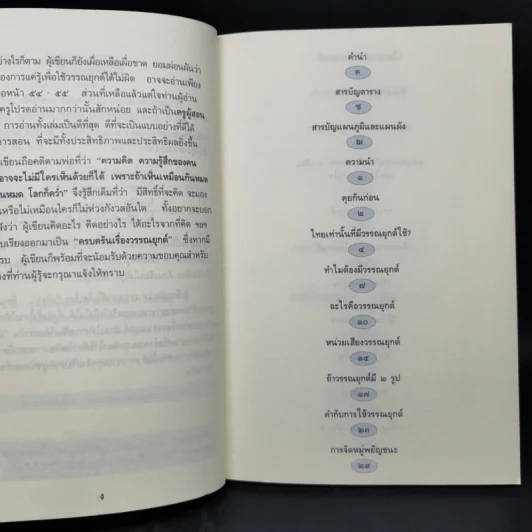 ย่างไรก็ตาม ผู้เขียนก็ยังเผื่อเหลือเผื่อขาด ยอมผ่อนผันว่า
องการแค่รู้เพื่อใช้วรรณยุกต์ได้ไม่ผิด อาจจะอ่านเพียง
อหน้า ๕๔ - ๕๕ ส่วนที่เหลือแล้วแต่ใจท่านผู้อ่าน
ครูโปรดอ่านมากกว่านั้นสักหน่อย และถ้าเป็นครูผู้สอน
การอ่านทั้งเล่มเป็นดีที่สุด ดีที่จะเป็นแบบอย่างที่ดีได้
ารสอน ที่จะมีทั้งประสิทธิภาพและประสิทธิผลยิ่งขึ้น
เขียนถือคติตามพ่อที่ว่า "ความคิด ความรู้สึกของคน
อาจจะไม่มีใครเห็นด้วยก็ได้ เพราะถ้าเห็นเหมือนกันหมด
นหมด โลกก็คว่ำ" จึงรู้สึกเต็มที่ว่า มีสิทธิ์ที่จะคิด จะมอง
หรือไม่เหมือนใครก็ไม่ห่วงกังวลอันใด ทั้งอยากจะบอก
ฟังว่า ผู้เขียนคิดอะไร คิดอย่างไร ได้อะไรจากที่คิด ฯลฯ
บเรียงออกมาเป็น "ครบครันเรื่องวรรณยุกต์" ซึ่งหากมี
รบ ผู้เขียนก็พร้อมที่จะน้อมรับด้วยความขอบคุณสำหรับ
งที่ท่านผู้รู้จะกรุณาแจ้งให้ทราบ
คำนำ
ค
สารบัญตาราง
ช
สารบัญแผนภูมิและแผนผัง
ฌ
ความนำ
๑
คุยกันก่อน
๒
ไทยเท่านั้นที่มีวรรณยุกต์ใช้?
๔
ทำไมต้องมีวรรณยุกต์
๗
อะไรคือวรรณยุกต์
๑๐
หน่วยเสียงวรรณยุกต์
๑๔
ถ้าวรรณยุกต์มี ๒ รูป
๑๗
คำกับการใช้วรรณยุกต์
๒๓
การจัดหมู่พยัญชนะ
๒๙